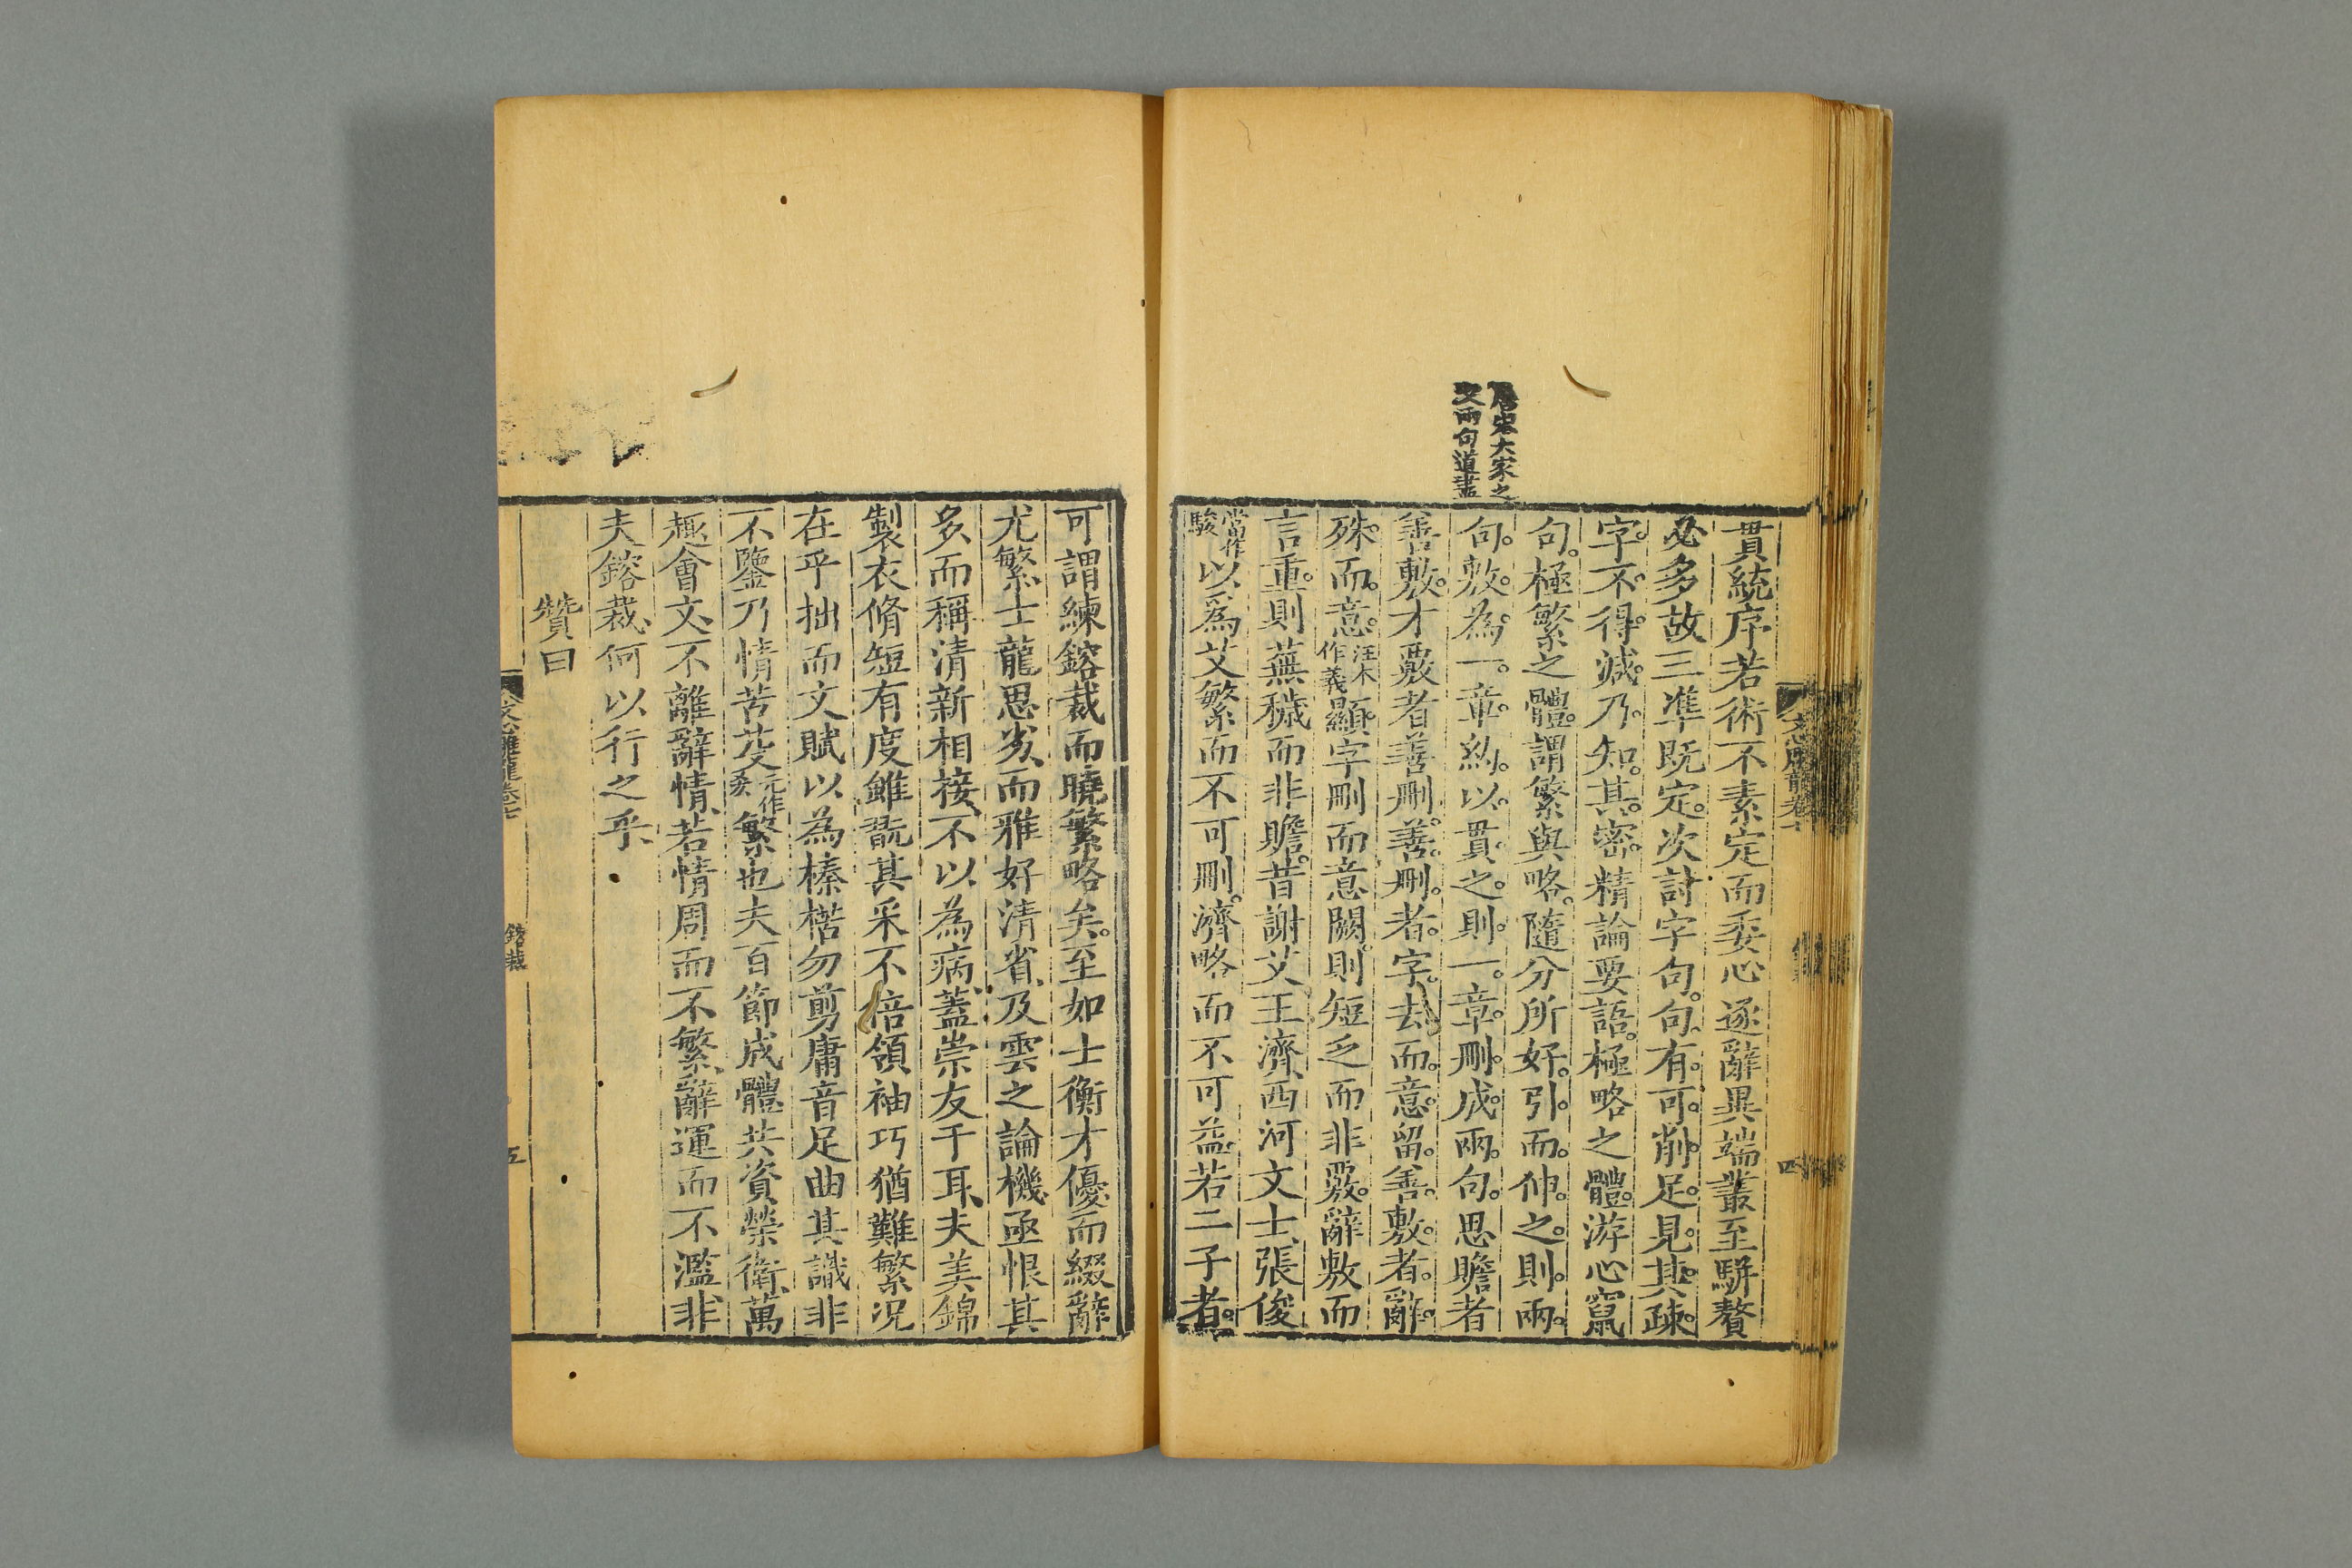 唐宋大家之
文兩句道盡
貫統序若術不素定而委心逐辭異端叢至駢贅
必多故三準既定次討字句句有可削足見其疎
字不得減乃知其密精論要語極略之體游心竄
句極繁之體謂繁與略隨分所好引而伸之則兩
句敷為一章約以貫之則一章刪成兩句思贍者
善敷才覈者善刪善刪者字去而意留善敷者辭
殊而意汪本作義顯字刪而意闕則短乏而非覈辭敷而
言重則蕪穢而非贍昔謝艾王濟西河文士張俊
當作駿以為艾繁而不可刪濟略而不可益若二子者
可謂練鎔裁而曉繁略矣至如士衡才優而綴辭
尤繁士龍思劣而雅好清省及雲之論機亟恨其
多而稱清新相接不以為病蓋崇友于耳夫美錦
製衣脩短有度雖翫其采不倍領袖巧猶難繁况
在乎拙而文賦以為榛楛勿剪庸音足曲其識非
不鑒乃情苦芟元作繁也夫百節成體共資榮衛萬
趣會文不離辭情若情周而不繁辭運而不濫非
夫鎔裁何以行之乎
贊曰
文心雕龍卷七
鎔裁
五
四